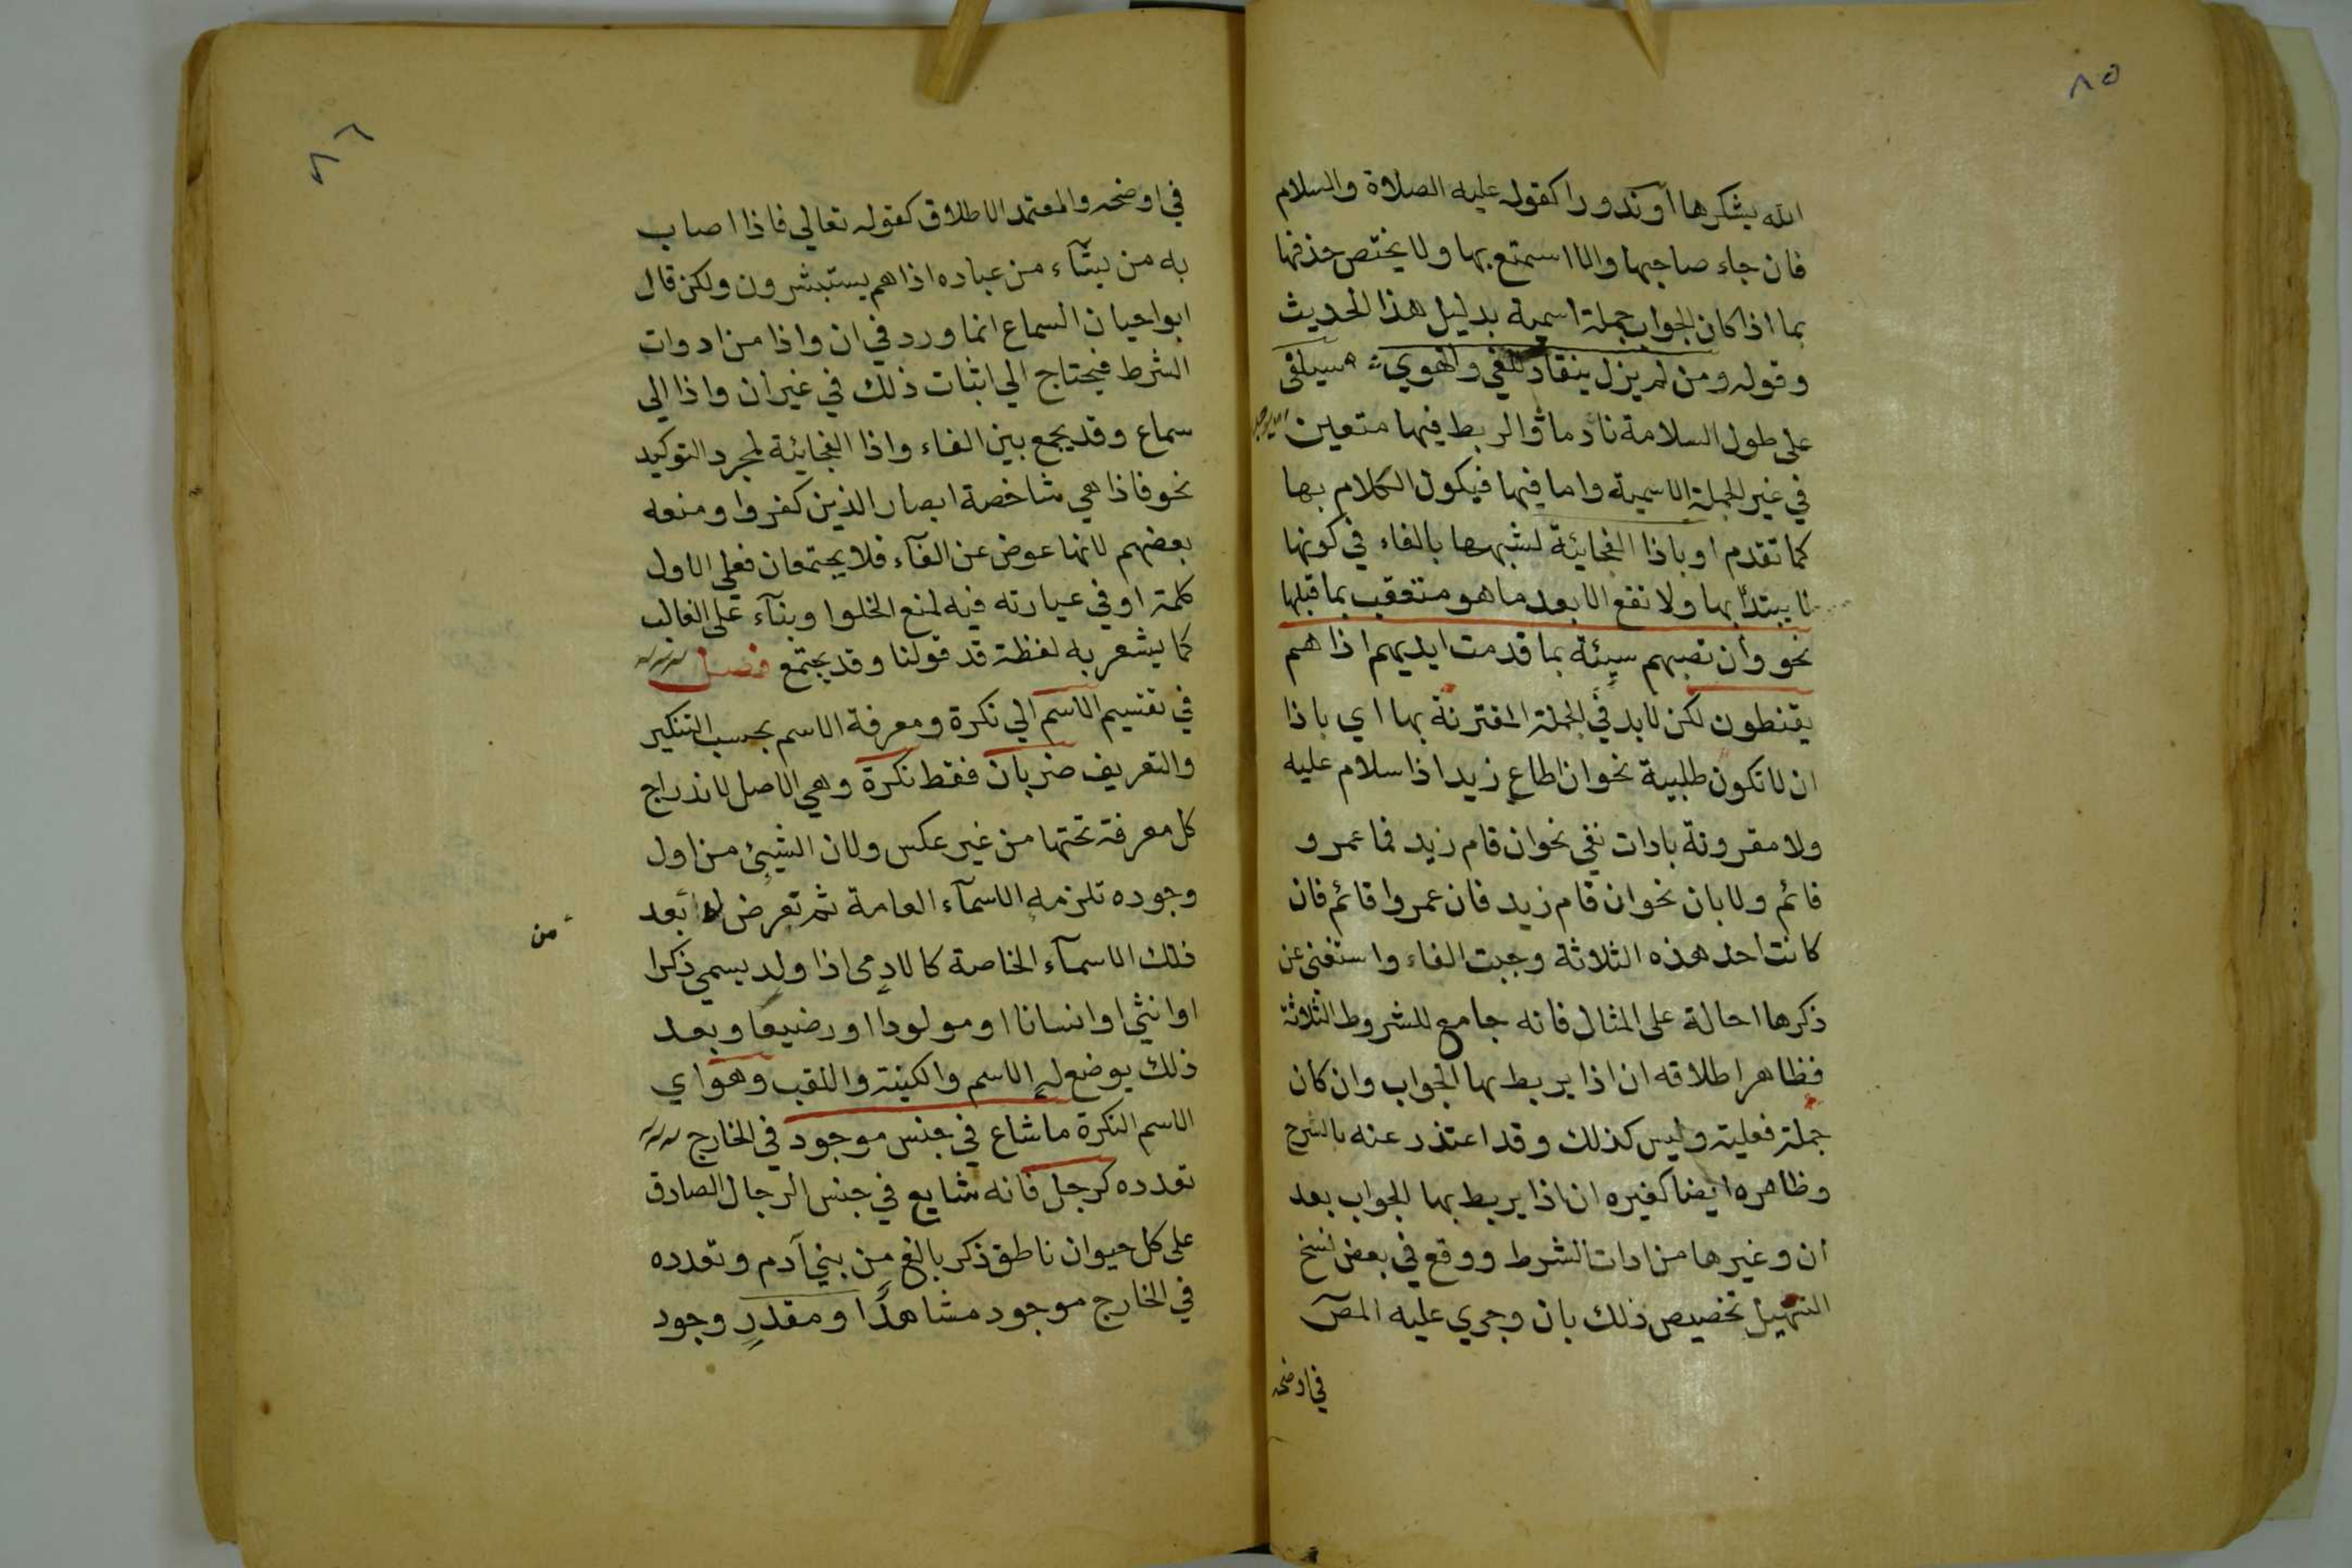 ٨٥
الله يشكرها أو ندورا كقوله عليه الصلاة والسلام
فان جاء صاحبها والا استمتع بها ولا يختص حذفها
بما اذا كان الجواب جملة اسمية بدليل هذا الحديث
وقوله ومن لم يزل ينقاد للغي والهوي سيلفى
على طول السلامة نادما والربط فيها متعين
في غير الجملة الاسمية واما فيها فيكون الكلام بها
كما تقدم او باذا الفجائية لشبهها بالفاء في كونها
لا يبتدأ بها ولا تقع الا بعد ما هو متعقب بما قبلها
نحو وان تصبهم سيئة بما قدمت ايديهم اذا هم
يقنطون لكن لابد في الجملة المقترنة بها اي باذا
ان لا تكون طلبية نحو ان اطاع زيد اذا سلام عليه
ولا مقرونة بادات نفي نحو ان قام زيد فما عمرو
قائم ولا بان نحو ان قام زيد فان عمروا قائم فان
كانت أحد هذه الثلاثة وجبت الفاء واستغنى عن
ذكرها احالة على المثال فانه جامع للشروط الثلاثة
فظاهر اطلاقه ان اذا يربط بها الجواب وان كان
جملة فعلية وليس كذلك وقد اعتذر عنه بالشرح
وظاهره ايضا كغيره ان اذا يربط بها الجواب بعد
أن وغيرها من ادات الشرط ووقع في بعض نسخ
التسهيل تخصيص ذلك بان وجري عليه المص
في اوضحه
٨٦
في اوضحه والمعتمد الاطلاق كقوله تعالي فاذا اصاب
به من يشآء من عباده اذا هم يستبشرون ولكن قال
ابوا حيان السماع انما ورد في ان واذا من ادوات
الشرط فيحتاج الي اثبات ذلك في غير أن واذا الي
سماع وقد يجمع بين الفاء واذا الفجائية لمجرد التوكيد
نحو فاذا هي شاخصة ابصار الذين كفروا ومنعه
بعضهم لانها عوض عن الفآء فلا يجتمعان فعلي الاول
كلمة او في عبارته فيه لمنع الخلوا وبنآء على الغالب
كما يشعر به لفظة قد قولنا وقد يجتمع فصل
في تقسيم الاسم الي نكرة ومعرفة الاسم بحسب التنكير
والتعريف ضربان فقط نكرة وهي الاصل لاندراج
كل معرفة تحتها من غير عكس ولان الشيئ من اول
وجوده تلزمه الاسمآء العامة ثم تعرض له بعد
من
ذلك الاسمآء الخاصة كالادمى اذا ولد يسمي ذكرا
او انثي او انسانا او مولودا او رضيعا وبعد
ذلك يوضع له الاسم والكنية واللقب وهو اي
الاسم النكرة ما شاع في جنس موجود في الخارج
تعدده كرجل فانه شايع في جنس الرجال الصادق
على كل حيوان ناطق ذكر بالغ من بني آدم وتعدده
في الخارج موجود مشاهدًا او مقدرٍ وجود